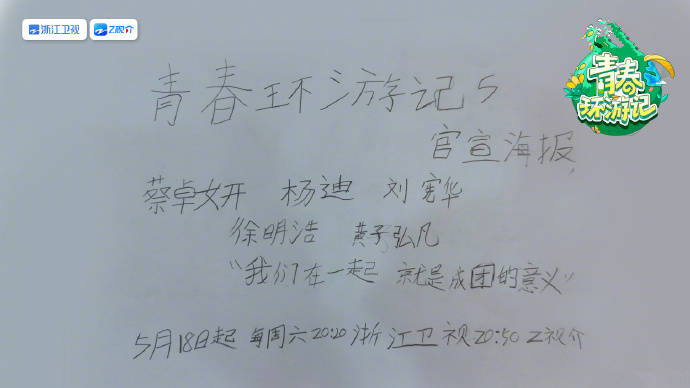 浙江卫视 Z视介
青春环游记
青春环游记5
官宣海报
蔡卓妍 杨迪 刘宪华
徐明浩 黄子弘凡
“我们在一起 就是成团的意义”
5月18日起 每周六20:20浙江卫视20:50Z视介